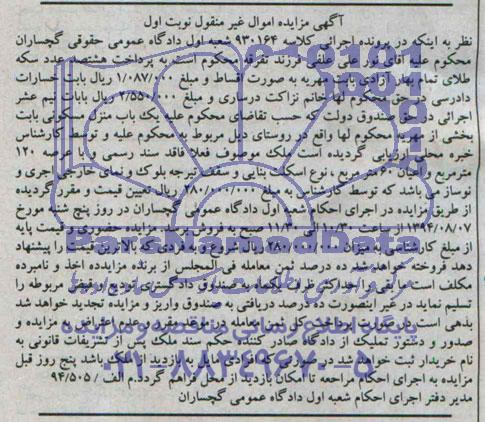 آگهی مزایده اموال غیر منقول نوبت اول
نظر به اینکه در پرونده اجرائی کلاسه ۹۳۰۱۶۴ شعبه اول دادگاه عمومی حقوقی گچساران
محکوم علیه آقای نور علی علفی فرزند تفرقه محکوم است به پرداخت هشتصد عدد سکه
طلای تمام بهار آزادی بابت مهریه به صورت اقساط و مبلغ ۱/۰۸۷/۰۰۰ ریال بابت خسارات
دادرسی در حق محکوم لها خانم نزاکت درساری و مبلغ ۲/۵۵۰/۰۰۰ ریال بابت نیم عشر
اجرائی در حق صندوق دولت که حسب تقاضای محکوم علیه یک باب منزل مسکونی بابت
بخشی از مهریه محکوم لها واقع در روستای دیل مربوط به محکوم علیه و توسط کارشناس
خبره محلی ارزیابی گردیده است ملک موصوف فعلا فاقد سند رسمی و با عرصه ۱۲۰
مترمربع و اعیان ۶۰ متر مربع ، نوع اسکلت بنایی و سقف تیرچه بلوک و نمای خارجی آجری و
نوساز می باشد که توسط کارشناس به مبلغ ۲۸۰/۰۰۰/۰۰۰ ریال تعیین قیمت و مقرر گردیده
از طریق مزایده در اجرای احکام شعبه اول دادگاه عمومی گچساران در روز پنج شنبه مورخ
۱۳۹۴/۰۸/۰۷ از ساعت ۱۰/۳۰ الی ۱۱/۳۰ صبح به فروش برسد. مزایده حضوری و قیمت پایه
از مبلغ کارشناسی به میزان ۲۸۰/۰۰۰/۰۰۰ ریال شروع و به فردی که بالاترین قیمت را پیشنهاد
دهد فروخته خواهد شد ده درصد ثمن معامله فی المجلس از برنده مزایده اخذ و نامبرده
مکلف است مابقی را حداکثر ظرف یکماه به صندوق دادگستری تودیع و قبض مربوطه را
تسلیم نماید در غیر اینصورت ده درصد دریافتی به صندوق واریز و مزایده تجدید خواهد شد
بدهی است در صورت پرداخت کل ثمن معامله در موعد مقرر و عدم اعتراض به مزایده و
صدور و دستور تملیک از دادگاه صادر کننده حکم سند ملک پس از تشریفات قانونی به
نام خریدار ثبت خواهد شد در صورتی که افرادی مایل به بازدید از ملک باشد پنج روز قبل
مزایده به اجرای احکام مراجعه تا امکان بازدید از محل فراهم گردد.م الف / ۹۴/۵۰۵
مدیر دفتر اجرای احکام شعبه اول دادگاه عمومی گچساران
ParsNamadData
پایگاه اطلاع رسانی مناقصه و مزایده
۰۲۱-۸۸۳۴۹۶۷۰-۵